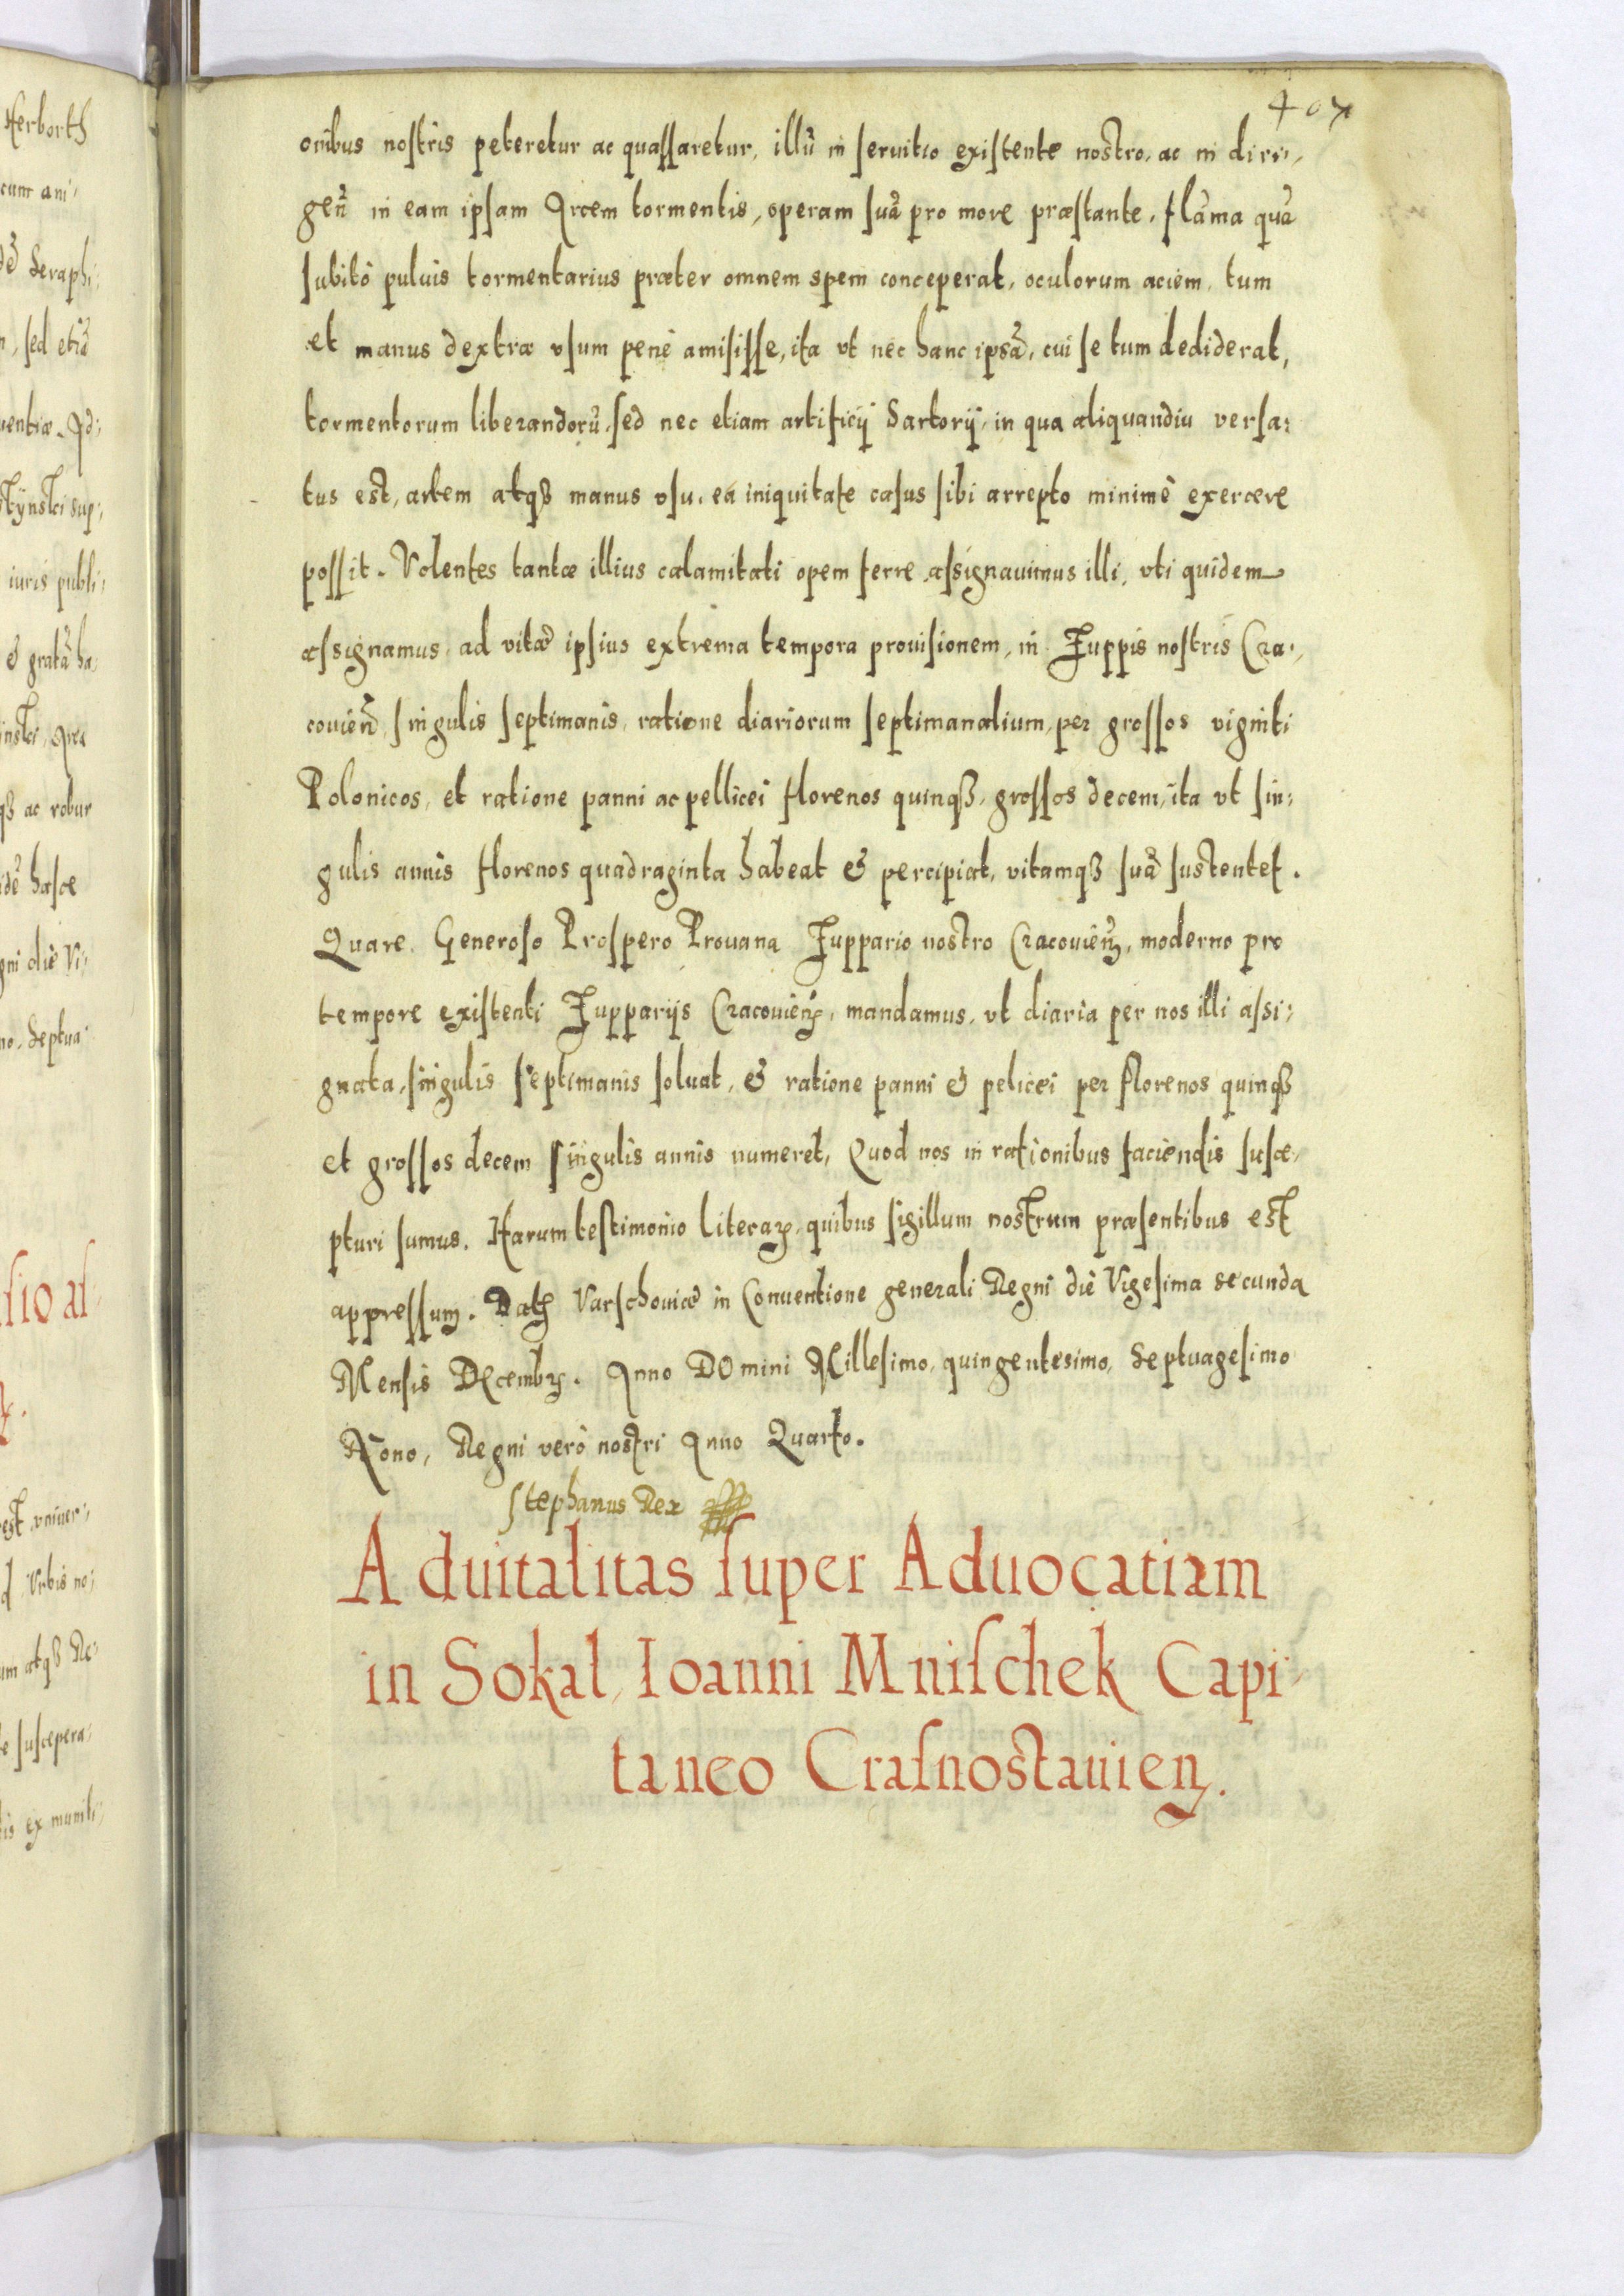 Herborth
cum ani,
Seraphi,
sed etiã
sup,
iuris publi,
& gratã ha,
ac robur
hasce
die Vi,
no. Septua
sio as
est vniuer,
Vrbis no,
um atqȝ Re,
suscepera,
ex muniti,
407
onibus nostris peteretur ac quassaretur, illũ in seruitio existente nostro, ac in diri,
geñ in eam ipsam Arcem tormentis, operam suã pro more præstante, flãma quã
subitò puluis tormentarius præter omnem spem conceperat, oculorum aciem, tum
et manus dextræ vsum penè amisisse, ita vt nec hanc ipsã, cui se tum dediderat,
tormentorum liberandorũ, sed nec etiam artificij Sartorij, in qua aliquandiu versa:
tus est, artem atqȝ manus vsu, ea iniquitate casus sibi arrepto minimè exercere
possit. Volentes tantæ illius calamitati opem ferre assignauimus illi, vti quidem
assignamus ad vitæ ipsius extrema tempora prouisionem, in Juppis nostris Cra,
couieñ singulis septimanis, ratione diariorum septimanalium, per grossos viginti
Polonicos, et ratione panni ac pellicei florenos quinqȝ, grossos decem, ita vt sin:
gulis annis florenos quadraginta habeat & percipiat, vitamqȝ suã sustentet.
Quare Generoso Prospero Prouana Juppario nostro Cracouieñ, moderno pro
tempore existenti Juppariis Cracouieñ, mandamus, vt diaria per nos illi assi:
gnata, singulis septimanis soluat, & ratione panni & pelicei per florenos quinqȝ
et grossos decem singulis annis numeret, Quod nos in rationibus faciendis susce,
pturi sumus. Harum testimonio literaꝝ, quibus sigillum nostrum præsentibus est
appressum. Datꝫ Varschouiæ in Conuentione generali Regni die Vigesima secunda
Mensis Decembꝫ. Anno DOmini Millesimo, quingentesimo, Septuagesimo
Nono, Regni verò nostri Anno Quarto.
Stephanus Rex
Aduitalitas super Aduocatiam
in Sokal, Ioanni Mnischek Capi,
taneo Crasnostauien̄.